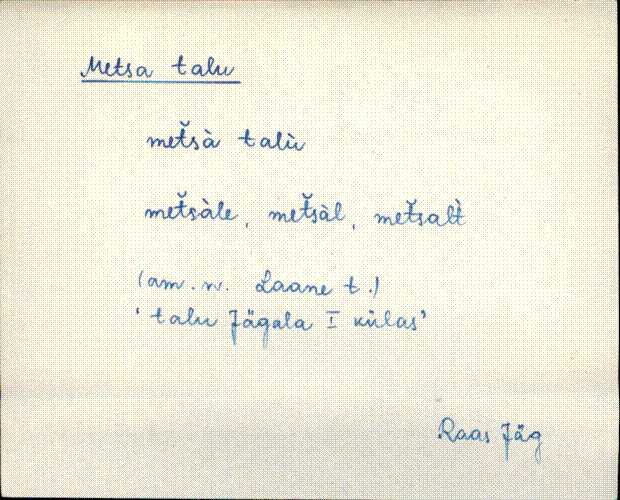 Metsa talu
met̆sà talù
met̆sàle, met̆sàl, met̆salt̀
(am. n. Laane t.)
'talu Jägala I külas'
Raas Jäg